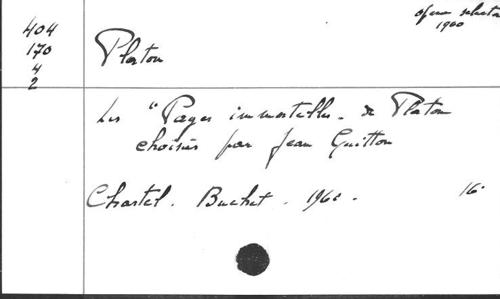 opera selecta
1960
404
170
4
2
Platon
Les "Pages immortelles - de Platon
choisies par Jean Guitton
Chastel. Buchet - 1960 - 16°